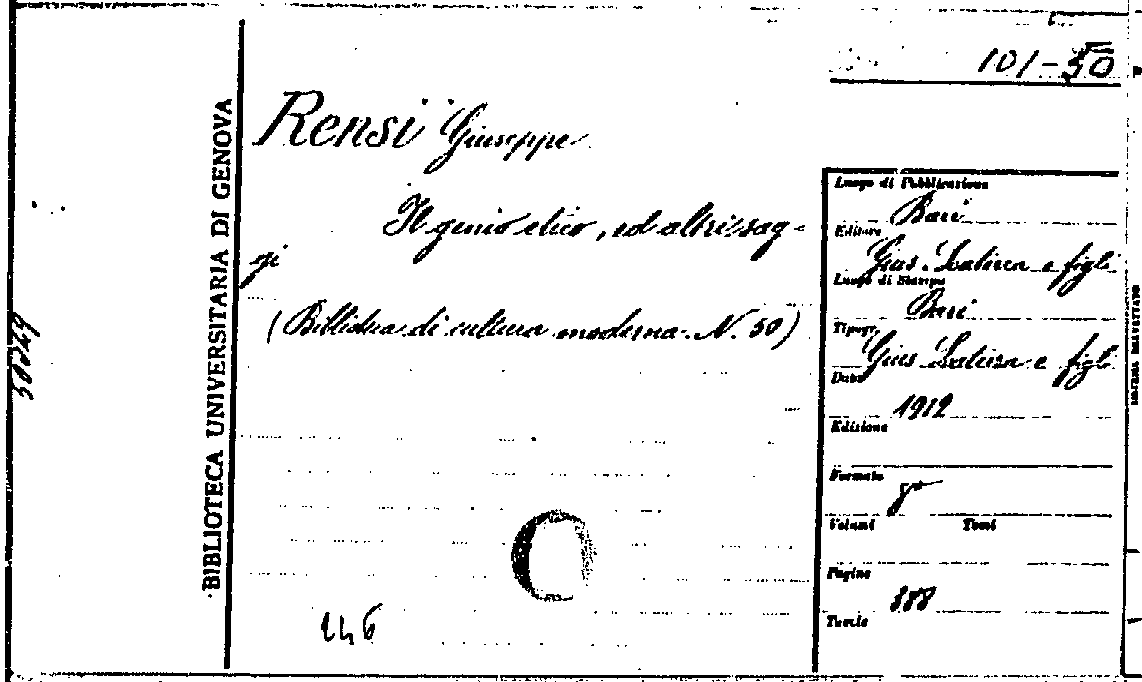 101-50
BIBLIOTECA UNIVERSITARIA DI GENOVA
Rensi Giuseppe
Il genio etico, ed altri sag-
gi
(Biblioteca di cultura moderna. N. 50)
Luogo di Pubblicazione
Bari
Editore
Gius. Laterza e figli
Luogo di Stampa
Bari
Tipogr.
Gius Laterza e figli
Data
1912
Edizione
Formato
8°
Volumi Tomi
Pagine
388
Tavole
146